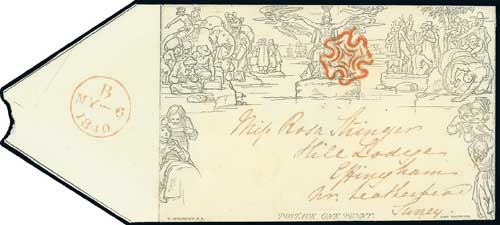 B
MY-6
1840
Miss Rosa Stringer
Hill Lodge
Effingham
Nr. Leatherhead
Surrey
POSTAGE ONE PENNY.